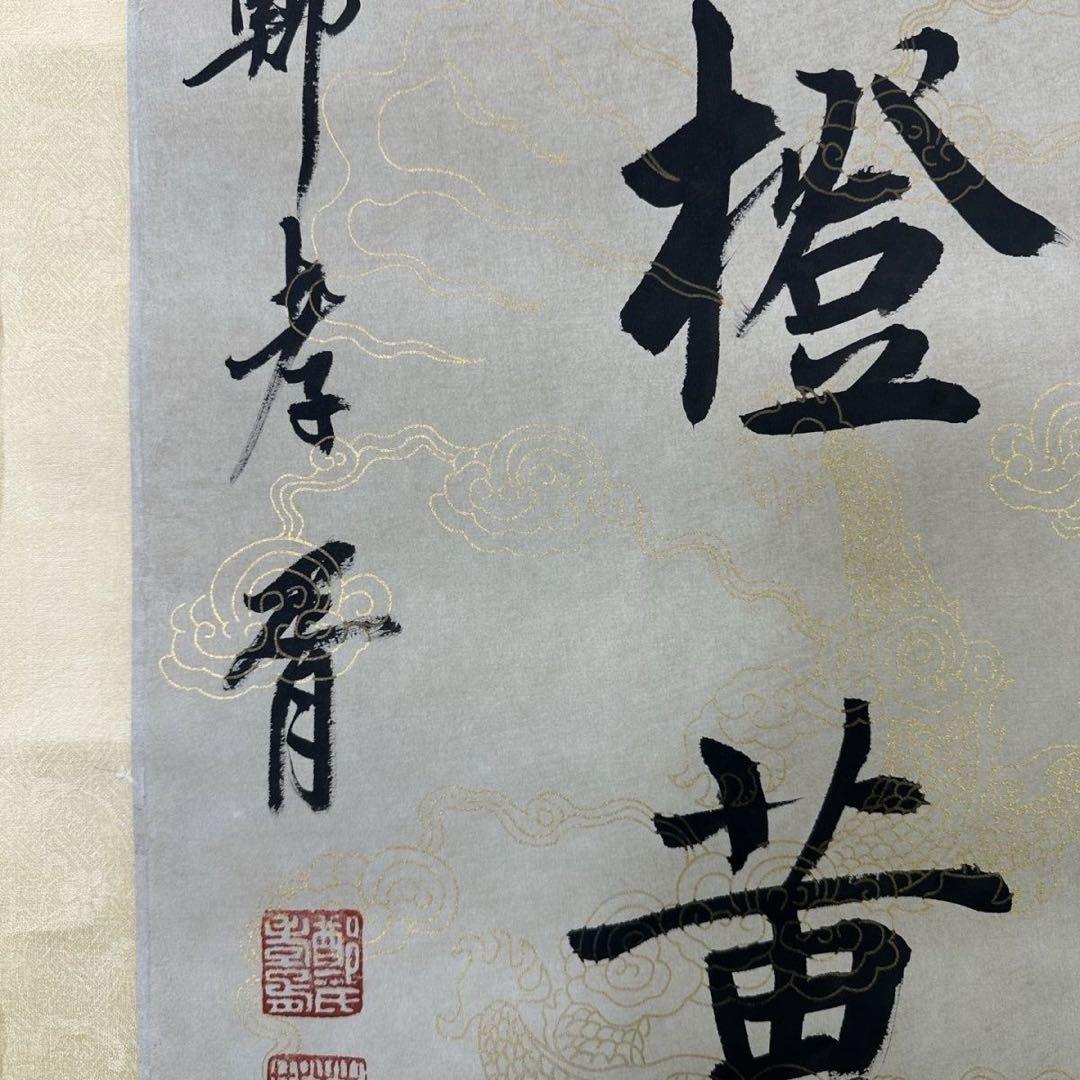 橙黄
鄭孝胥
鄭氏